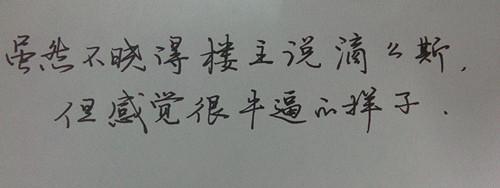 虽然不晓得楼主说滴么斯，
但感觉很牛逼的样子.